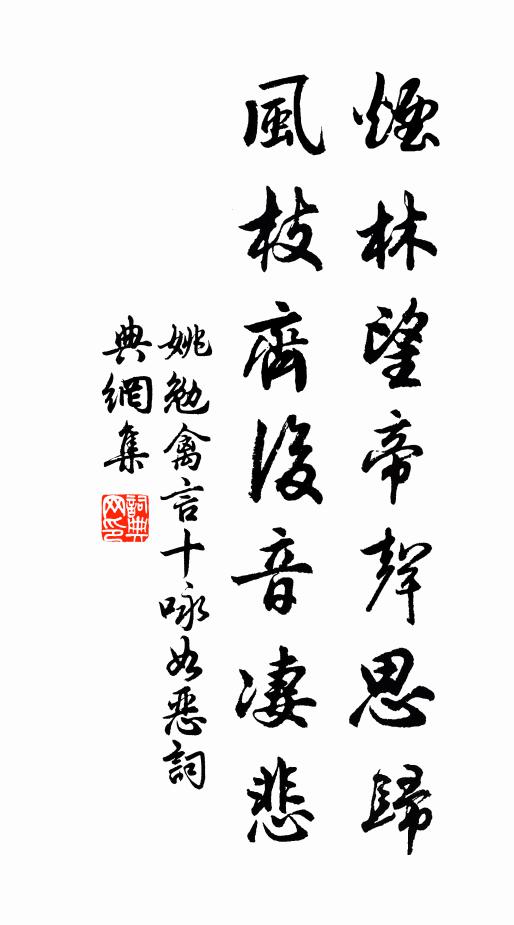 煙林望帝聲思歸
風枝齊後音凄悲
姚勉禽言十咏如惡詞
典網集
詞典网印